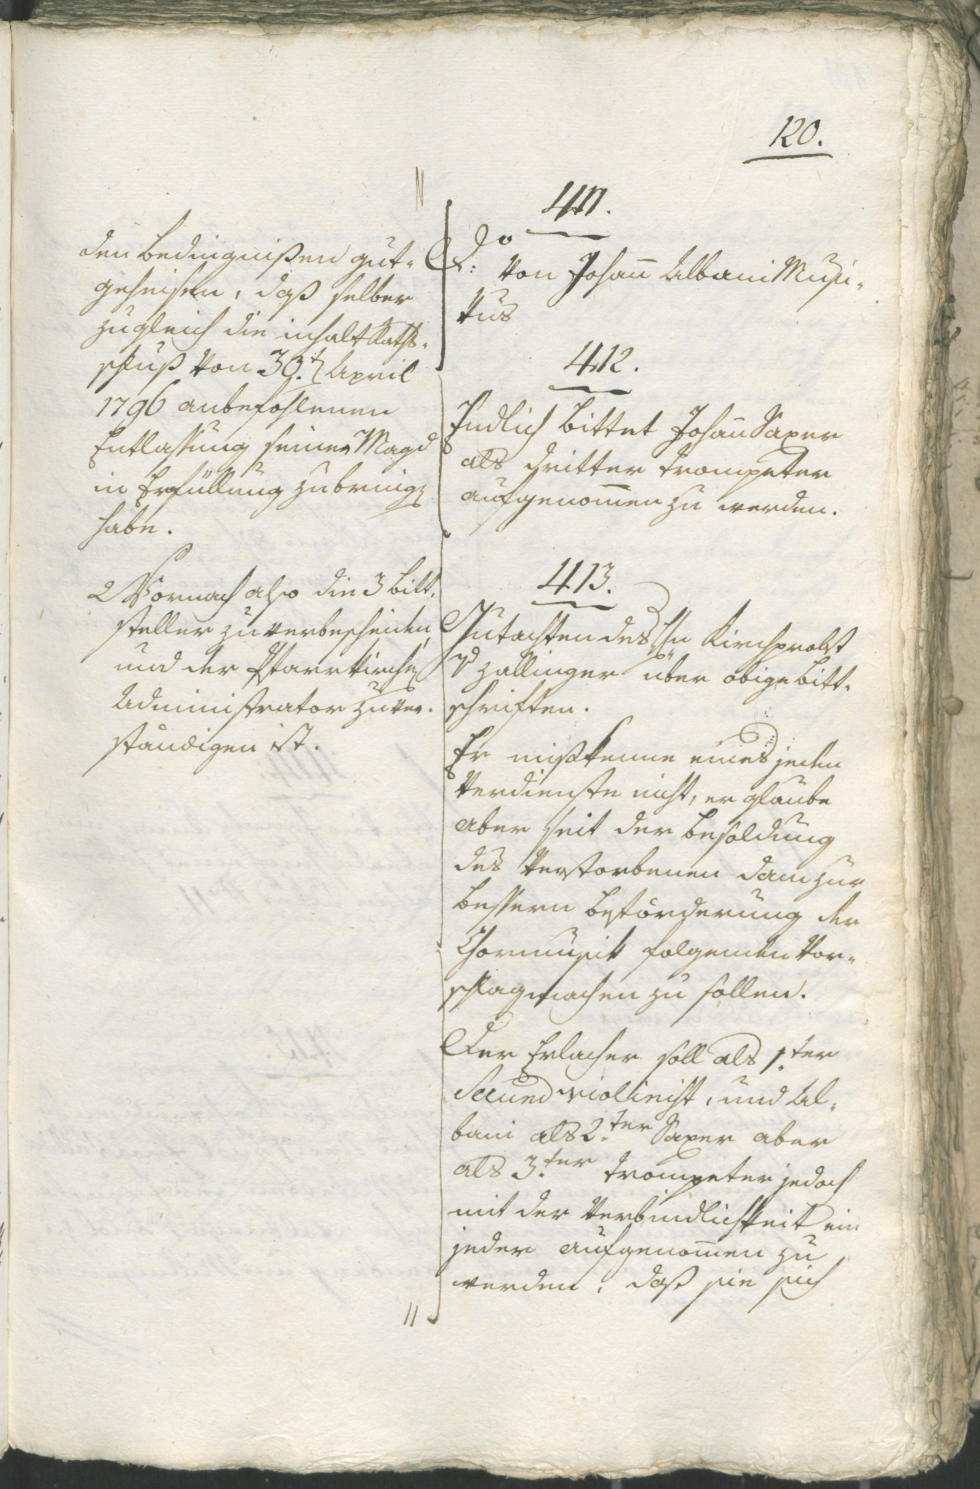 120.
den Bedingnißen gut-
geheisen, daß selber
zugleich die inhalt Raths-
schluß von 30.t April
1796 anbefohlenen
Entlassung seiner Magd
in Erfüllung zubringen
habe.
2 Wornach also die 3 Bitt-
steller zuverbescheiden,
und der Pfarrkirchen
Administrator zuver-
ständigen ist.
411.
do von Johann Albani Musi-
kus
412.
Endlich bittet Johan Saxer
als dritter Trompeter
aufgenommen zu werden.
413.
Gutachten des Hn Kirchprobst
v Zallinger über obige Bitt-
schriften.
Er mißkenne eines jeden
Verdienste nicht, er glaube
aber seit der Besoldung
des Verstorbenen dann zur
bessern Beförderung der
Chormusik folgenden Vor-
schlag machen zu sollen.
Der Erlacher soll als 1.ter
Secund violinist, und Al-
bani als 2.ter Saxer aber
als 3.ter Trompeter jedoch
mit der Verbindlichkeit ein
jeder aufgenommen zu
werden, daß sie sich